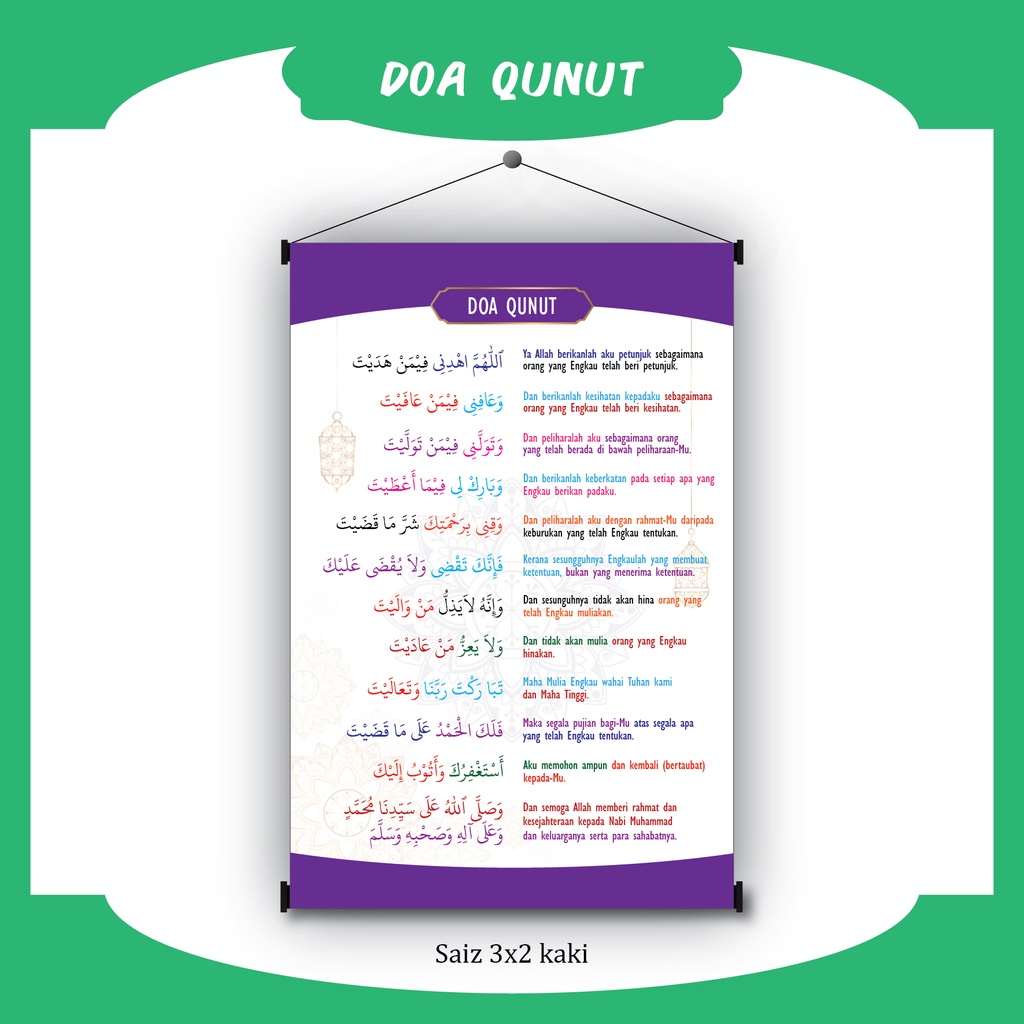 DOA QUNUT
DOA QUNUT
ٱللَّهُمَّ اهْدِنِى فِيْمَنْ هَدَيْتَ
Ya Allah berikanlah aku petunjuk sebagaimana
orang yang Engkau telah beri petunjuk.
وَعَافِنِى فِيْمَنْ عَافَيْتَ
Dan berikanlah kesihatan kepadaku sebagaimana
orang yang Engkau telah beri kesihatan.
وَتَوَلَّنِى فِيْمَنْ تَوَلَّيْتَ
Dan peliharalah aku sebagaimana orang
yang telah berada di bawah peliharaan-Mu.
وَبَارِكْ لِى فِيْمَا أَعْطَيْتَ
Dan berikanlah keberkatan pada setiap apa yang
Engkau berikan padaku.
وَقِنِى بِرَحْمَتِكَ شَرَّ مَا قَضَيْتَ
Dan peliharalah aku dengan rahmat-Mu daripada
keburukan yang telah Engkau tentukan.
فَإِنَّكَ تَقْضِى وَلاَ يُقْضَى عَلَيْكَ
Kerana sesungguhnya Engkaulah yang membuat
ketentuan, bukan yang menerima ketentuan.
وَإِنَّهُ لاَيَذِلُّ مَنْ وَالَيْتَ
Dan sesunguhnya tidak akan hina orang yang
telah Engkau muliakan.
وَلاَ يَعِزُّ مَنْ عَادَيْتَ
Dan tidak akan mulia orang yang Engkau
hinakan.
تَبَا رَكْتَ رَبَّنَا وَتَعَالَيْتَ
Maha Mulia Engkau wahai Tuhan kami
dan Maha Tinggi.
فَلَكَ الْحَمْدُ عَلَى مَا قَضَيْتَ
Maka segala pujian bagi-Mu atas segala apa
yang telah Engkau tentukan.
أَسْتَغْفِرُكَ وَأَتُوْبُ إِلَيْكَ
Aku memohon ampun dan kembali (bertaubat)
kepada-Mu.
وَصَلَّى ٱللهُ عَلَى سَيِّدِنَا مُحَمَّدٍ
وَعَلَى آلِهِ وَصَحْبِهِ وَسَلَّمَ
Dan semoga Allah memberi rahmat dan
kesejahteraan kepada Nabi Muhammad
dan keluarganya serta para sahabatnya.
Saiz 3x2 kaki